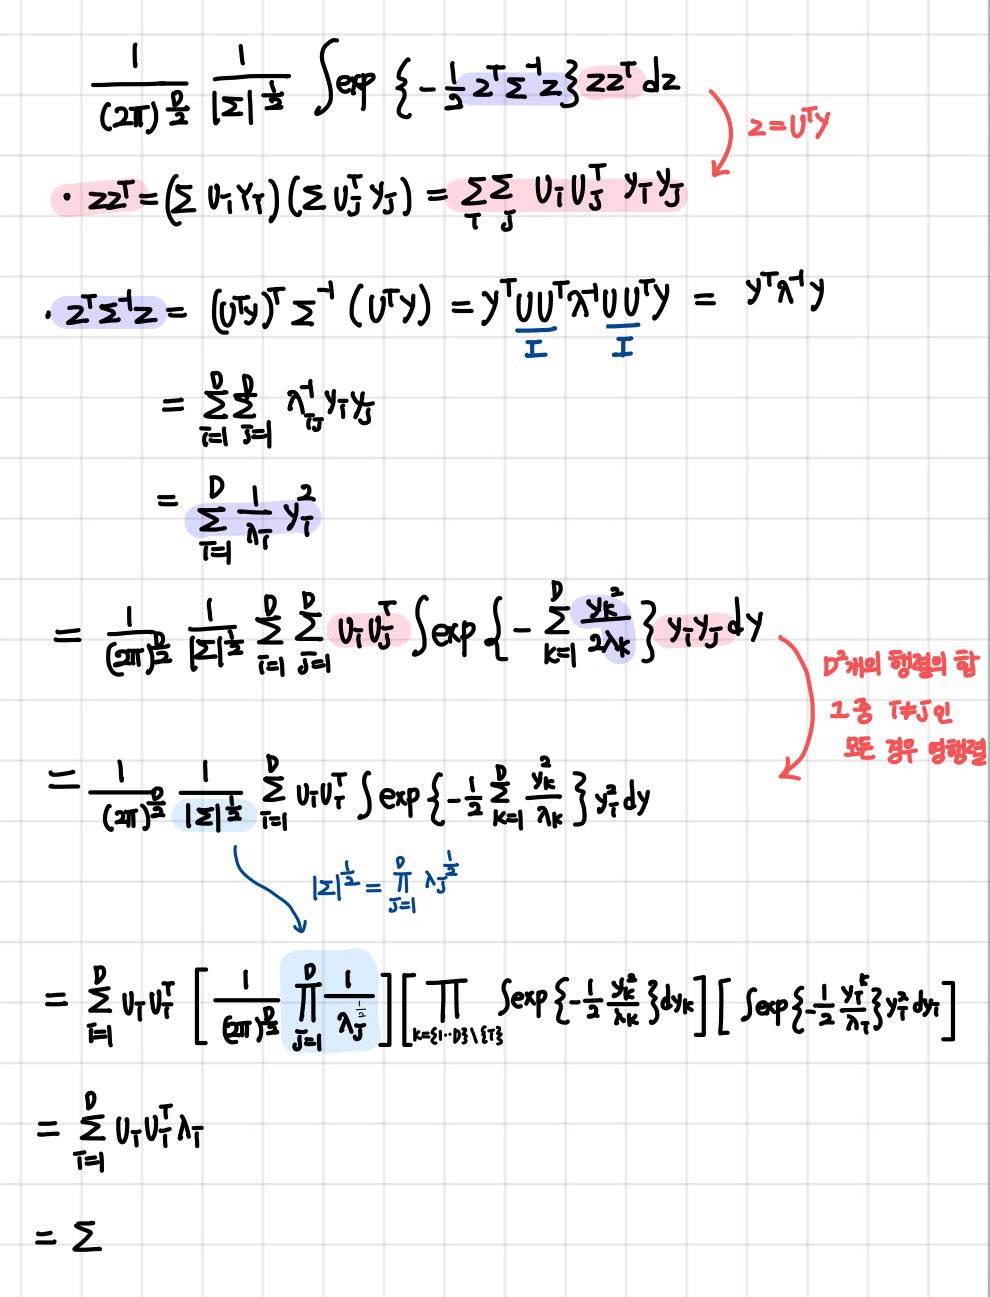 1/(2π)^(D/2) 1/|Σ|^(1/2) ∫exp{-1/2 z^T Σ^-1 z} zz^T dz
z=U^T y
· zz^T = (Σ u_i y_i)(Σ u_j^T y_j) = Σ_i Σ_j u_i u_j^T y_i y_j
· z^T Σ^-1 z = (U^T y)^T Σ^-1 (U^T y) = y^T UU^T λ^-1 UU^T y = y^T λ^-1 y
I I
= Σ_{i=1}^D Σ_{j=1}^D λ_ij^-1 y_i y_j
= Σ_{i=1}^D 1/λ_i y_i^2
= 1/(2π)^(D/2) 1/|Σ|^(1/2) Σ_{i=1}^D Σ_{j=1}^D u_i u_j^T ∫exp{-Σ_{k=1}^D y_k^2/2λ_k} y_i y_j dy
D^2개의 행렬의 합
그중 i≠j인
모든 경우 영행렬
= 1/(2π)^(D/2) 1/|Σ|^(1/2) Σ_{i=1}^D u_i u_i^T ∫exp{-1/2 Σ_{k=1}^D y_k^2/λ_k} y_i^2 dy
|Σ|^(1/2) = Π_{j=1}^D λ_j^(1/2)
= Σ_{i=1}^D u_i u_i^T [1/(2π)^(D/2) Π_{j=1}^D 1/λ_j^(1/2)] [Π_{k={1··D}\{i}} ∫exp{-1/2 y_k^2/λ_k}dy_k] [∫exp{-1/2 y_i^2/λ_i} y_i^2 dy_i]
= Σ_{i=1}^D u_i u_i^T λ_i
= Σ